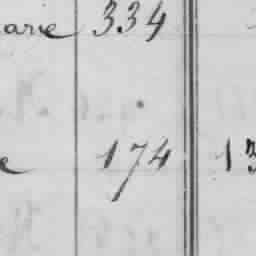 arie 334
e 174 13